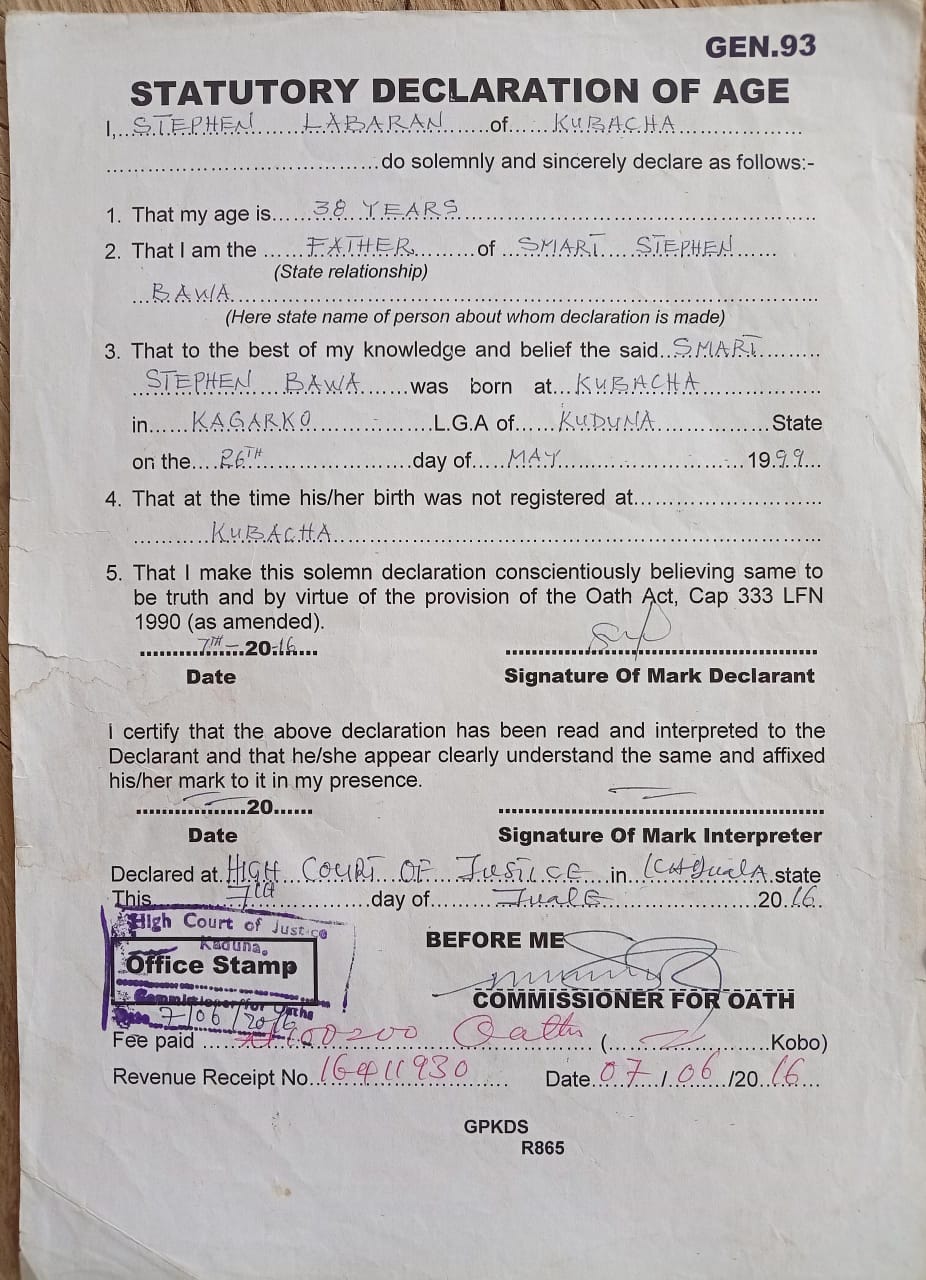 GEN.93
STATUTORY DECLARATION OF AGE
I, STEPHEN LABARAN of KUBACHA
do solemnly and sincerely declare as follows:-
1. That my age is 38 YEARS
2. That I am the FATHER of SMART STEPHEN
(State relationship)
BAWA
(Here state name of person about whom declaration is made)
3. That to the best of my knowledge and belief the said SMART
STEPHEN BAWA was born at KUBACHA
in KAGARKO L.G.A of KUDUNA State
on the 26TH day of MAY 1999
4. That at the time his/her birth was not registered at
KUBACHA
5. That I make this solemn declaration conscientiously believing same to
be truth and by virtue of the provision of the Oath Act, Cap 333 LFN
1990 (as amended).
7TH 2016
Date
Signature Of Mark Declarant
I certify that the above declaration has been read and interpreted to the
Declarant and that he/she appear clearly understand the same and affixed
his/her mark to it in my presence.
20
Date
Signature Of Mark Interpreter
Declared at HIGH COURT OF JUSTICE in state
This day of 2016
High Court of Justice
Kaduna.
Office Stamp
Commissioner for Oaths
7/06/2016
BEFORE ME
COMMISSIONER FOR OATH
Fee paid Oath ( Kobo)
Revenue Receipt No. Date 07/06/2016
GPKDS
R865